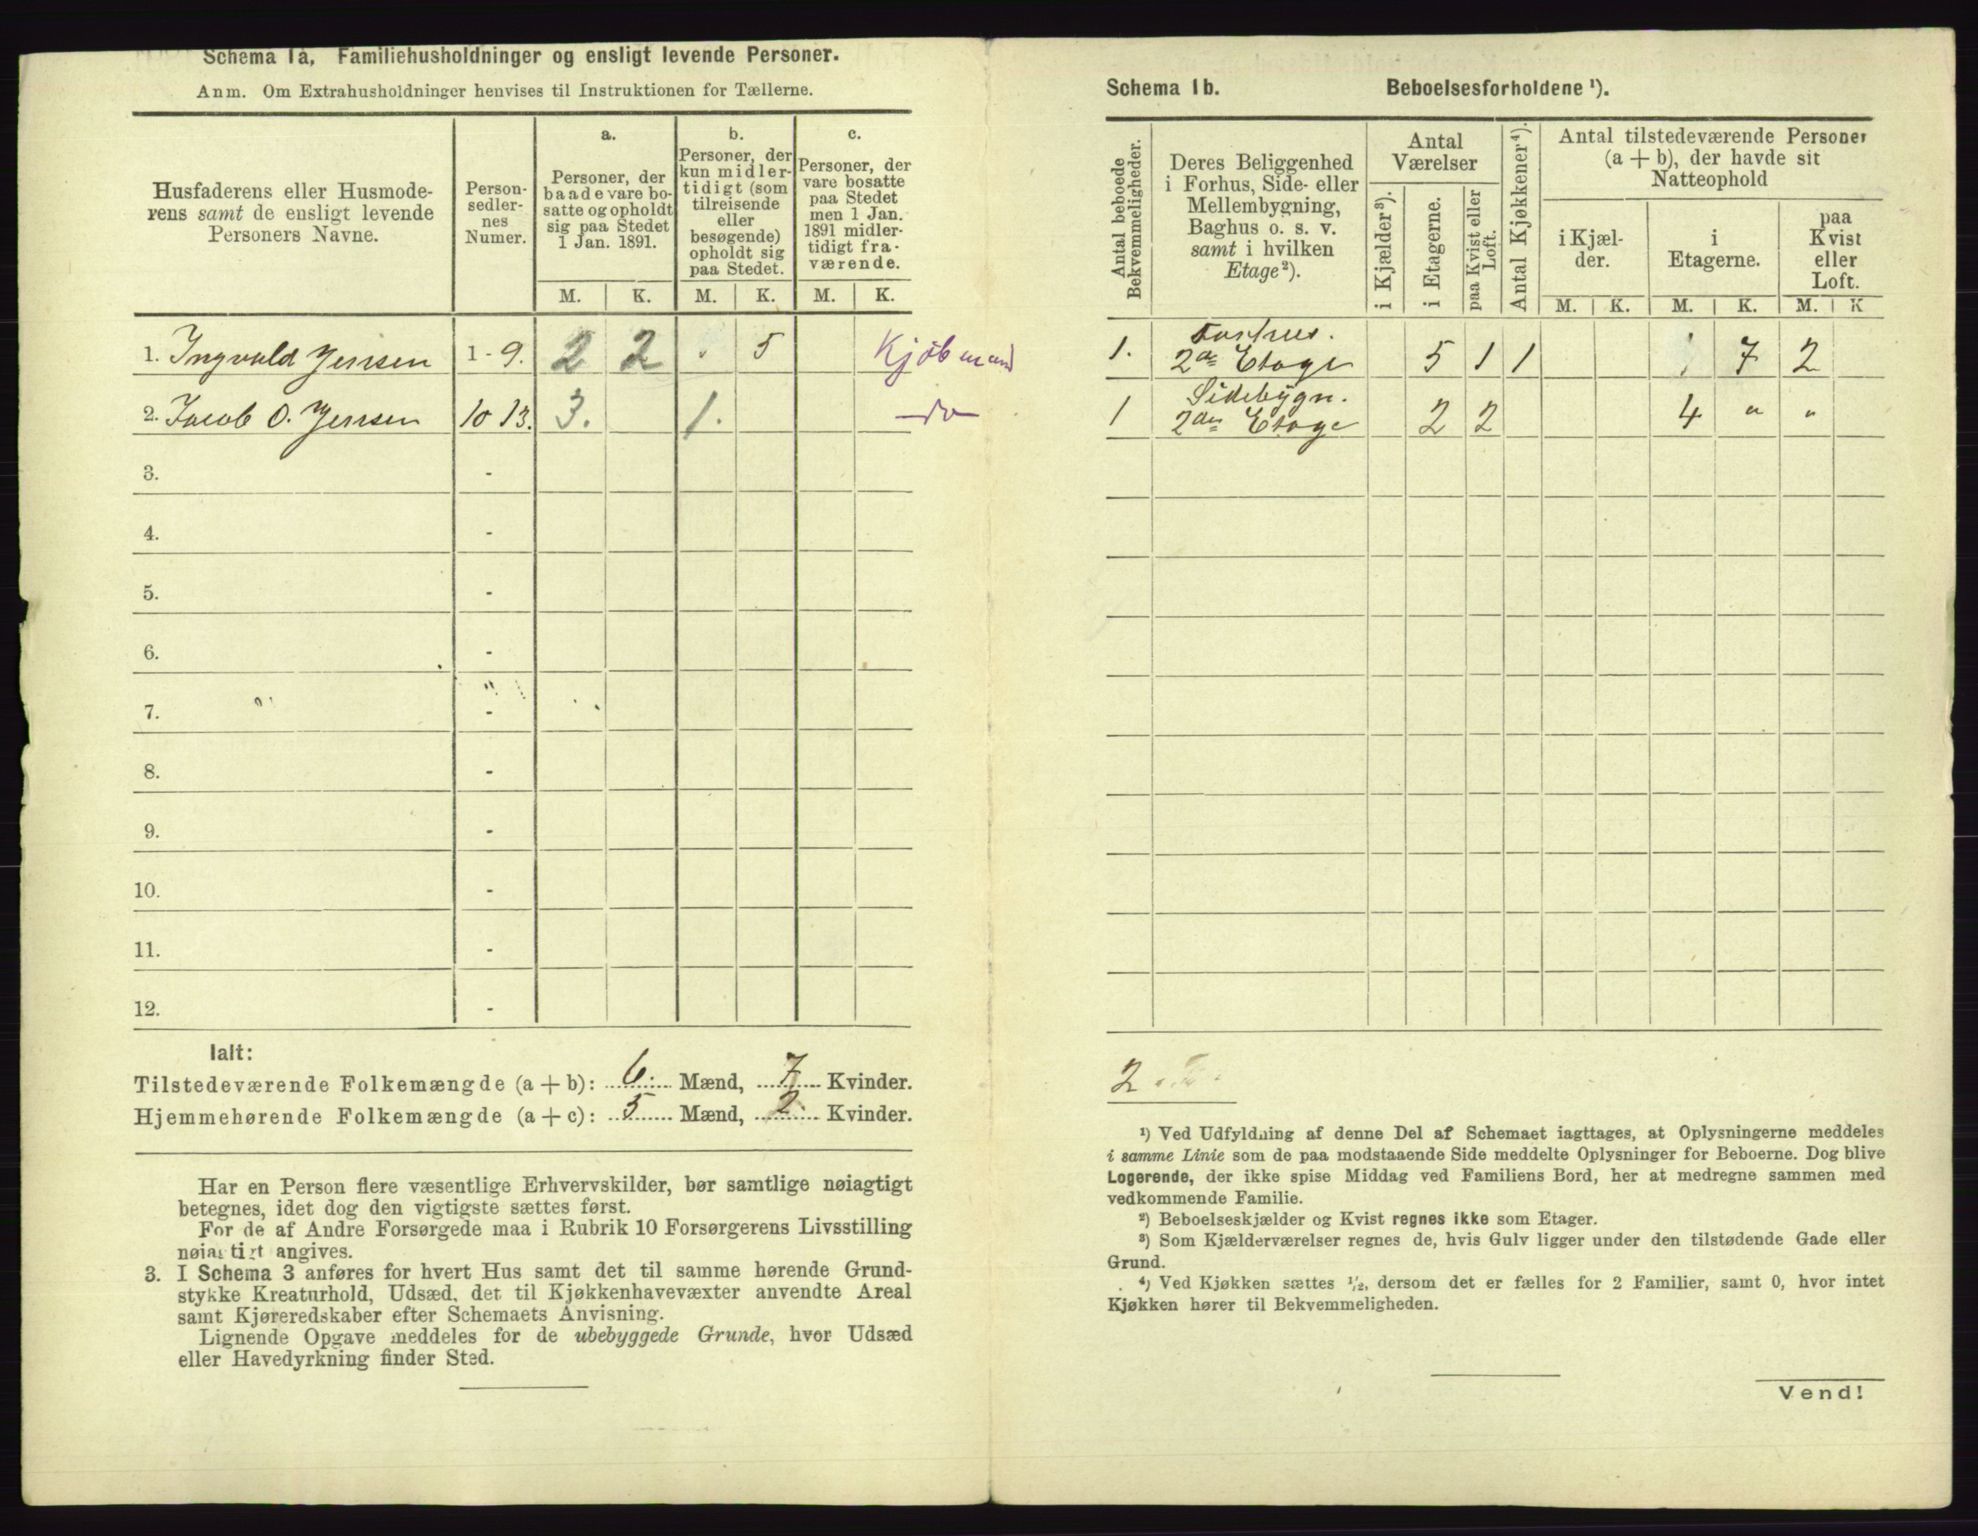 Schema 1a, Familiehusholdninger og ensligt levende Personer.
Anm. Om Extrahusholdninger henvises til Instruktionen for Tællerne.
Husfaderens eller Husmode-
rens samt de ensligt levende
Personers Navne.
Person-
sedler-
nes
Numer.
a.
Personer, der
baade vare bo-
satte og opholdt
sig paa Stedet
1 Jan. 1891.
b.
Personer, der
kun midler-
tidigt (som
tilreisende
eller
besøgende)
opholdt sig
paa Stedet.
c.
Personer, der
vare bosatte
paa Stedet
men 1 Jan.
1891 midler-
tidigt fra-
værende.
M. K. M. K. M. K.
1. Ingvald Jensen 1 - 9. 2 2 " 5 Kjøbmand
2. Jacob O. Jensen 10 13. 3. 1. — do —
3. -
4. -
5. -
6.
7. -
8. -
9. -
10. -
11. -
12. -
Ialt:
Tilstedeværende Folkemængde (a + b): 6. Mænd, 7 Kvinder.
Hjemmehørende Folkemængde (a + c): 5 Mænd, 2. Kvinder.
Har en Person flere væsentlige Erhvervskilder, bør samtlige nøiagtigt
betegnes, idet dog den vigtigste sættes først.
For de af Andre Forsørgede maa i Rubrik 10 Forsørgerens Livsstilling
nøiagtigt angives.
3. I Schema 3 anføres for hvert Hus samt det til samme hørende Grund-
stykke Kreaturhold, Udsæd, det til Kjøkkenhavevæxter anvendte Areal
samt Kjøreredskaber efter Schemaets Anvisning.
Lignende Opgave meddeles for de ubebyggede Grunde, hvor Udsæd
eller Havedyrkning finder Sted.
Schema 1b. Beboelsesforholdene ¹).
Antal beboede
Bekvemmeligheder.
Deres Beliggenhed
i Forhus, Side- eller
Mellembygning,
Baghus o. s. v.
samt i hvilken
Etage ²).
Antal
Værelser
i Kjælder ³).
i Etagerne.
paa Kvist eller
Loft.
Antal Kjøkkener ⁴).
Antal tilstedeværende Personer
(a + b), der havde sit
Natteophold
i Kjæl-
der.
i
Etagerne.
paa
Kvist
eller
Loft.
M. K. M. K. M. K
Forhus.
1. 2de Etage 5 1 1 7 2
Sidebygn.
1 2den Etage 2 2 4 " "
2
¹) Ved Udfyldning af denne Del af Schemaet iagttages, at Oplysningerne meddeles
i samme Linie som de paa modstaaende Side meddelte Oplysninger for Beboerne. Dog blive
Logerende, der ikke spise Middag ved Familiens Bord, her at medregne sammen med
vedkommende Familie.
²) Beboelseskjælder og Kvist regnes ikke som Etager.
³) Som Kjælderværelser regnes de, hvis Gulv ligger under den tilstødende Gade eller
Grund.
⁴) Ved Kjøkken sættes ½, dersom det er fælles for 2 Familier, samt 0, hvor intet
Kjøkken hører til Bekvemmeligheden.
Vend!